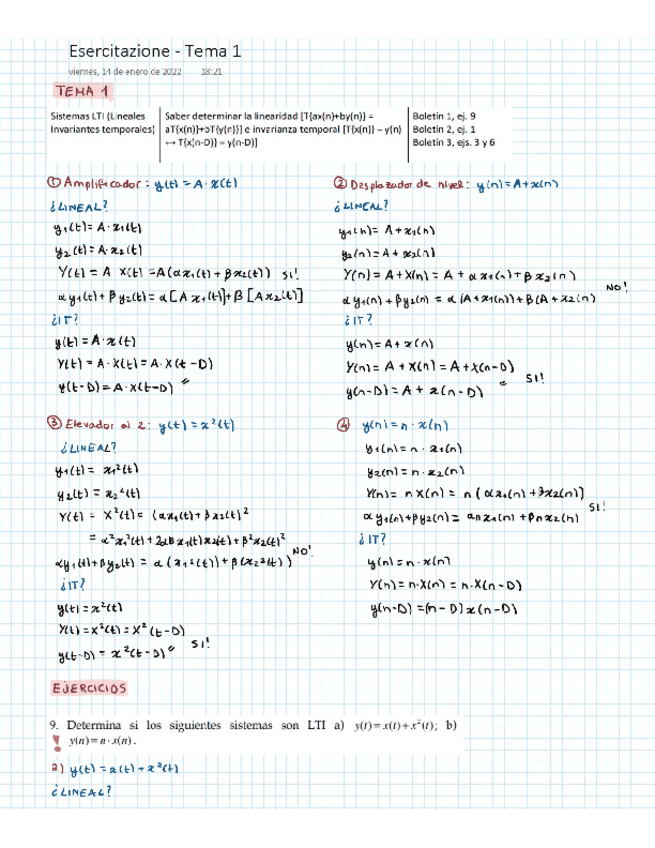 Esercitazione - Tema 1
viernes, 14 de enero de 2022 18:21
TEMA 1
Sistemas LTI (Lineales Invariantes temporales)
Saber determinar la linearidad [T{ax(n)+by(n)} = aT{x(n)}+bT{y(n)}] e invarianza temporal [T{x(n)} = y(n) ↔ T{x(n-D)} = y(n-D)]
Boletín 1, ej. 9
Boletín 2, ej. 1
Boletín 3, ejs. 3 y 6
① Amplificador: y(t) = A · x(t)
¿LINEAL?
y1(t) = A · x1(t)
y2(t) = A · x2(t)
Y(t) = A X(t) = A(αx1(t) + βx2(t)) SI!
αy1(t) + βy2(t) = α[A x1(t)] + β[A x2(t)]
¿IT?
y(t) = A · x(t)
Y(t) = A · X(t) = A · X(t-D)
y(t-D) = A · x(t-D) "
② Desplazador de nivel: y(n) = A + x(n)
¿LINEAL?
y1(n) = A + x1(n)
y2(n) = A + x2(n)
Y(n) = A + X(n) = A + αx1(n) + βx2(n)
NO!
αy1(n) + βy2(n) = α(A + x1(n)) + β(A + x2(n))
¿IT?
y(n) = A + x(n)
Y(n) = A + X(n) = A + X(n-D)
= SI!
y(n-D) = A + x(n-D)
③ Elevador al 2: y(t) = x²(t)
¿LINEAL?
y1(t) = x1²(t)
y2(t) = x2²(t)
Y(t) = X²(t) = (αx1(t) + βx2(t)²
= α²x1²(t) + 2αβx1(t)x2(t) + β²x2(t)²
NO!
αy1(t) + βy2(t) = α(x1²(t)) + β(x2²(t))
¿IT?
y(t) = x²(t)
Y(t) = X²(t) = X²(t-D)
SI!
y(t-D) = x²(t-D) "
④ y(n) = n · x(n)
¿LINEAL?
y1(n) = n · x1(n)
y2(n) = n · x2(n)
Y(n) = n X(n) = n(αx1(n) + βx2(n))
SI!
αy1(n) + βy2(n) = αnx1(n) + βnx2(n)
¿IT?
y(n) = n · x(n)
Y(n) = n · X(n) = n · X(n-D)
y(n-D) = (n-D)x(n-D)
EJERCICIOS
9. Determina si los siguientes sistemas son LTI a) y(t) = x(t) + x²(t); b)
! y(n) = n · x(n).
a) y(t) = x(t) + x²(t)
¿LINEAL?